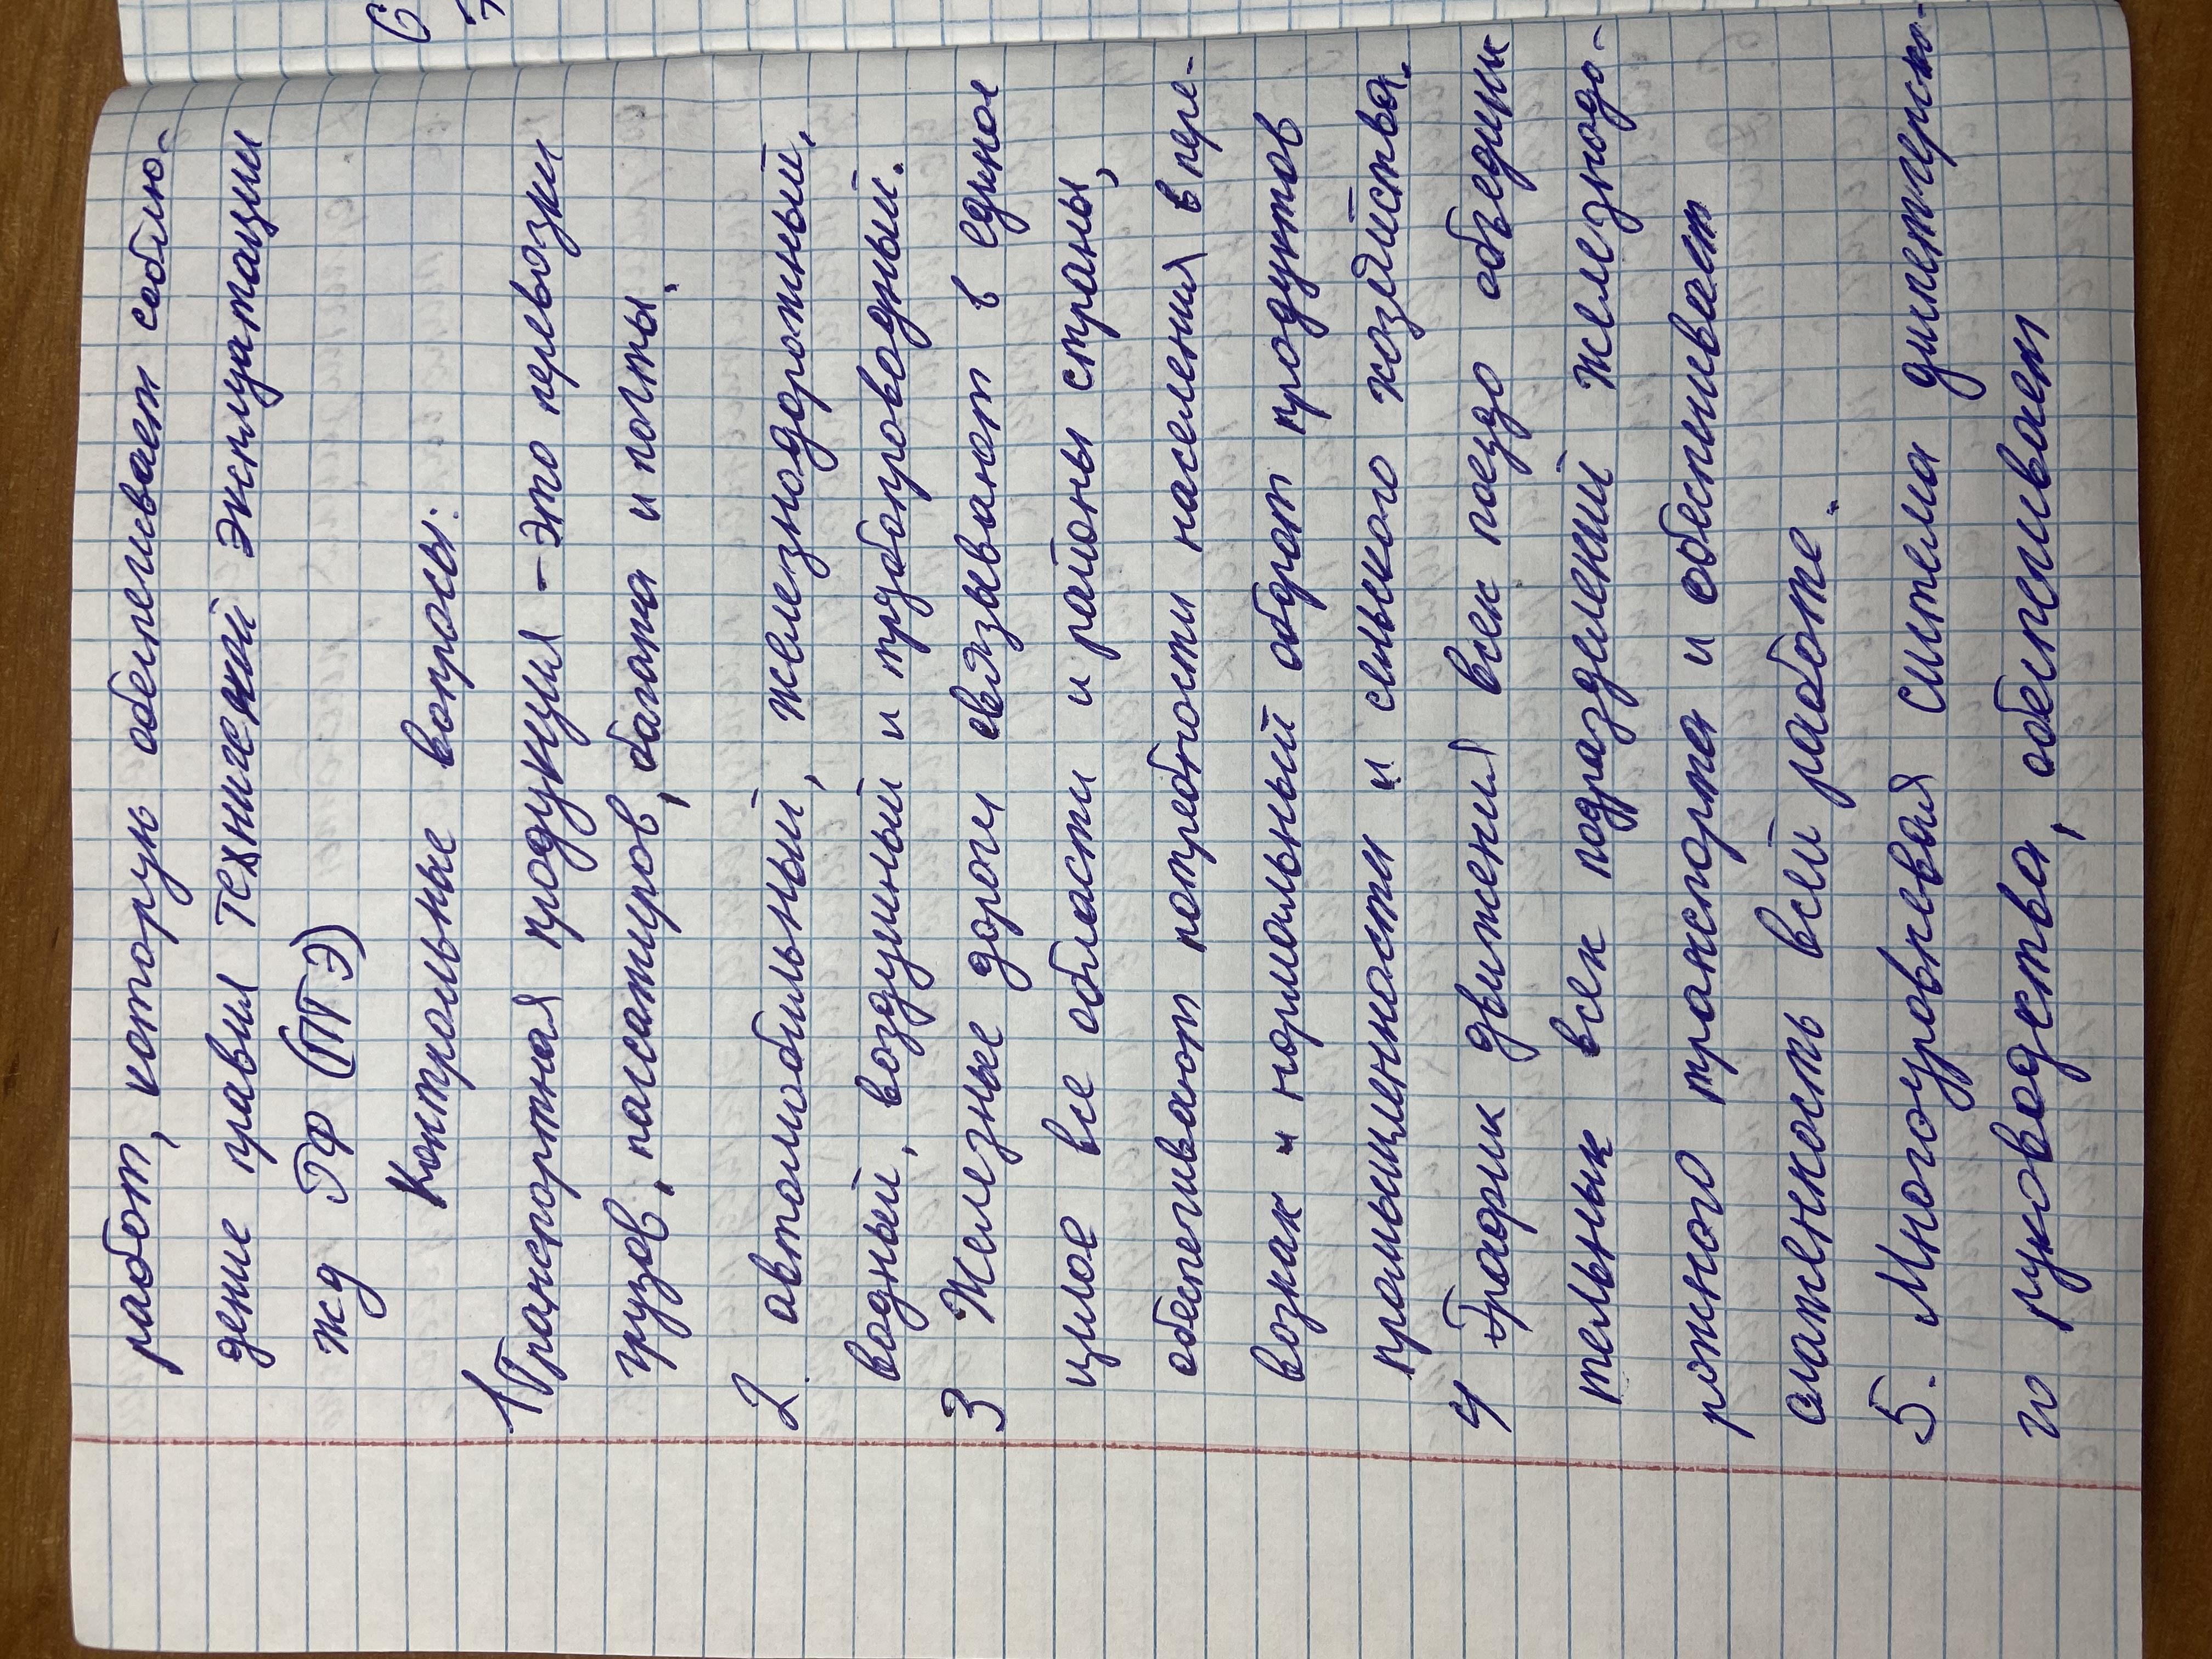 работ, которую обеспечивает соблю-
дение правил технической эксплуатации
жд РФ (ПТЭ)
Контрольные вопросы:
1 Транспортная продукция - это перевозки
грузов, пассажиров, багажа и почты.
2. автомобильный, железнодорожный,
водный, воздушный и трубопроводный.
3 Железные дороги связывают в единое
целое все области и районы страны,
обеспечивают потребности населения в пере-
возках и нормальный оборот продуктов
промышленности и сельского хозяйства.
4 График движения всех поездо объедин
тельных всех подразделений железнодо-
рожного транспорта и обеспечивает
слаженность всей работе.
5. Многоуровневая система диспетчерско-
го руководства, обеспечивает
6